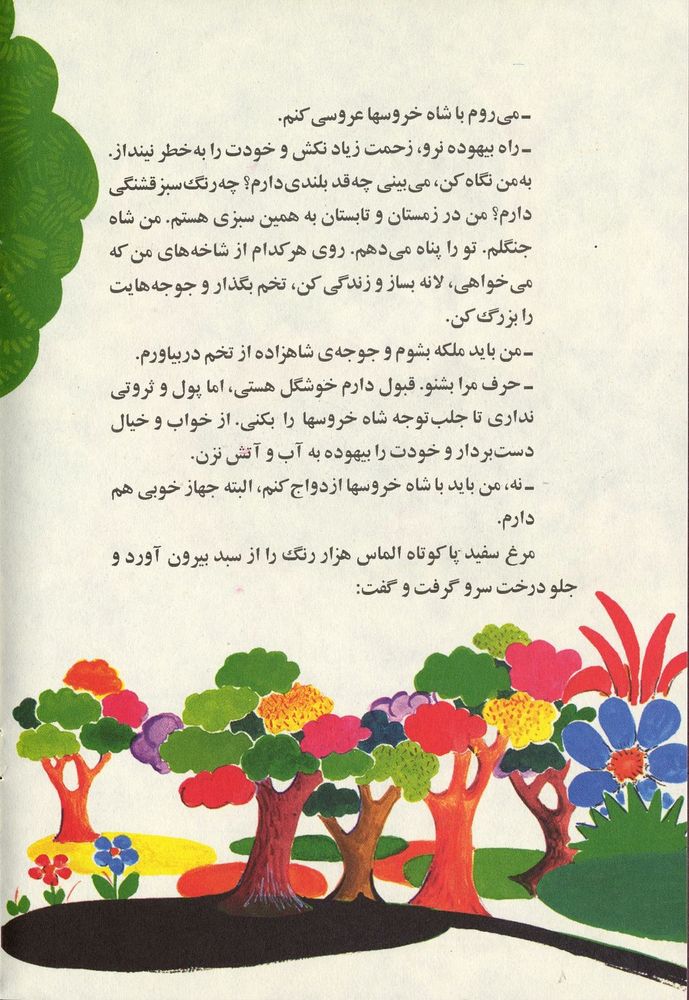 ـ می‌روم با شاه خروسها عروسی کنم.
ـ راه بیهوده نرو، زحمت زیاد نکش و خودت را به‌خطر نینداز.
به‌من نگاه کن، می‌بینی چه‌قد بلندی دارم؟ چه‌رنگ سبز قشنگی
دارم؟ من در زمستان و تابستان به همین سبزی هستم. من شاه
جنگلم. تو را پناه می‌دهم. روی هرکدام از شاخه‌های من که
می‌خواهی، لانه بساز و زندگی کن، تخم بگذار و جوجه‌هایت
را بزرگ کن.
ـ من باید ملکه بشوم و جوجه‌ی شاهزاده از تخم دربیاورم.
ـ حرف مرا بشنو. قبول دارم خوشگل هستی، اما پول و ثروتی
نداری تا جلب توجه شاه خروسها را بکنی. از خواب و خیال
دست‌بردار و خودت را بیهوده به آب و آتش نزن.
ـ نه، من باید با شاه خروسها ازدواج کنم، البته جهاز خوبی هم
دارم.
مرغ سفید پا کوتاه الماس هزار رنگ را از سبد بیرون آورد و
جلو درخت سرو گرفت و گفت: